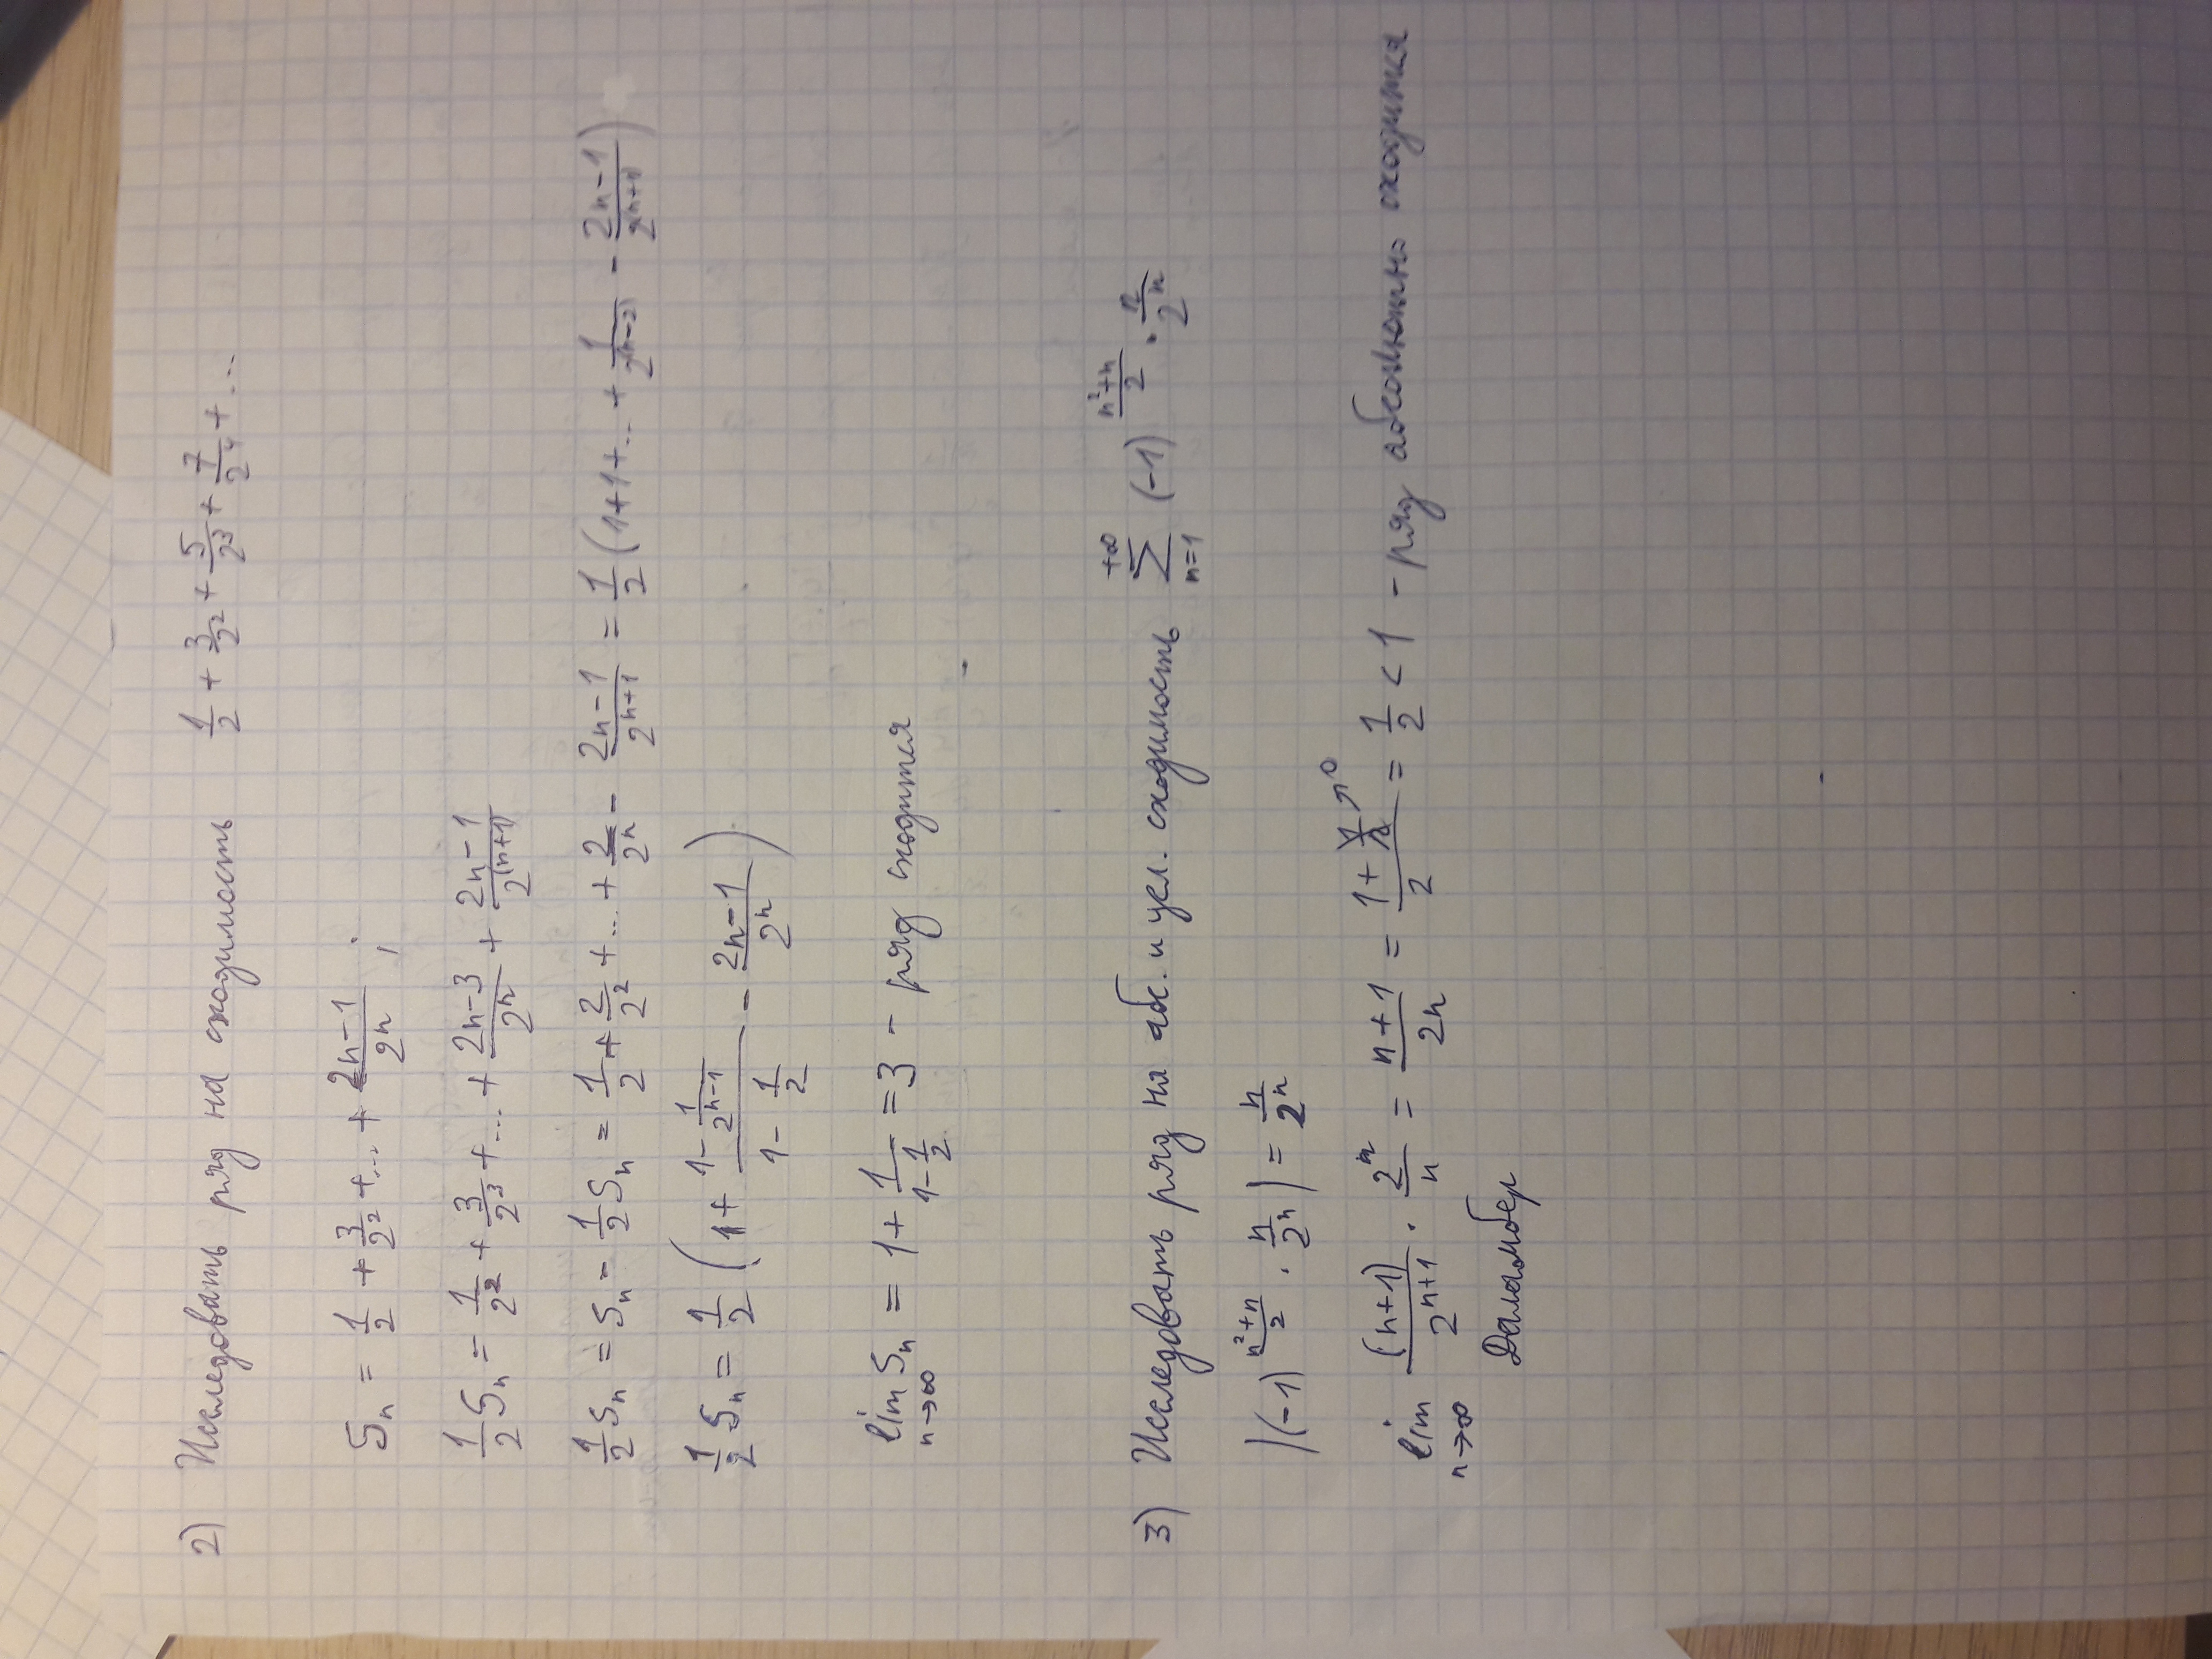 2) Исследовать ряд на сходимость 1/2 + 3/2² + 5/2³ + 7/2⁴ + ...
Sₙ = 1/2 + 3/2² + ... + (2n-1)/2ⁿ ;
1/2 Sₙ = 1/2² + 3/2³ + ... + (2n-3)/2ⁿ + (2n-1)/2^(n+1)
1/2 Sₙ = Sₙ - 1/2 Sₙ = 1/2 + 2/2² + ... + 2/2ⁿ - (2n-1)/2^(n+1) = 1/2 (1+1+... + 1/2^(n-2) - (2n-1)/2^(n+1))
1/2 Sₙ = 1/2 (1 + (1 - 1/2^(n-1))/(1 - 1/2) - (2n-1)/2ⁿ)
lim n→∞ Sₙ = 1 + 1/(1 - 1/2) = 3 - ряд сходится
3) Исследовать ряд на абс. и усл. сходимость ∑ n=1 +∞ (-1)^((n²+n)/2) · n/2ⁿ
|(-1)^((n²+n)/2) · n/2ⁿ| = n/2ⁿ
lim n→∞ (n+1)/2^(n+1) · 2ⁿ/n = (n+1)/2n = (1 + 1/n ↗0)/2 = 1/2 < 1 - ряд абсолютно сходится
Даламбер